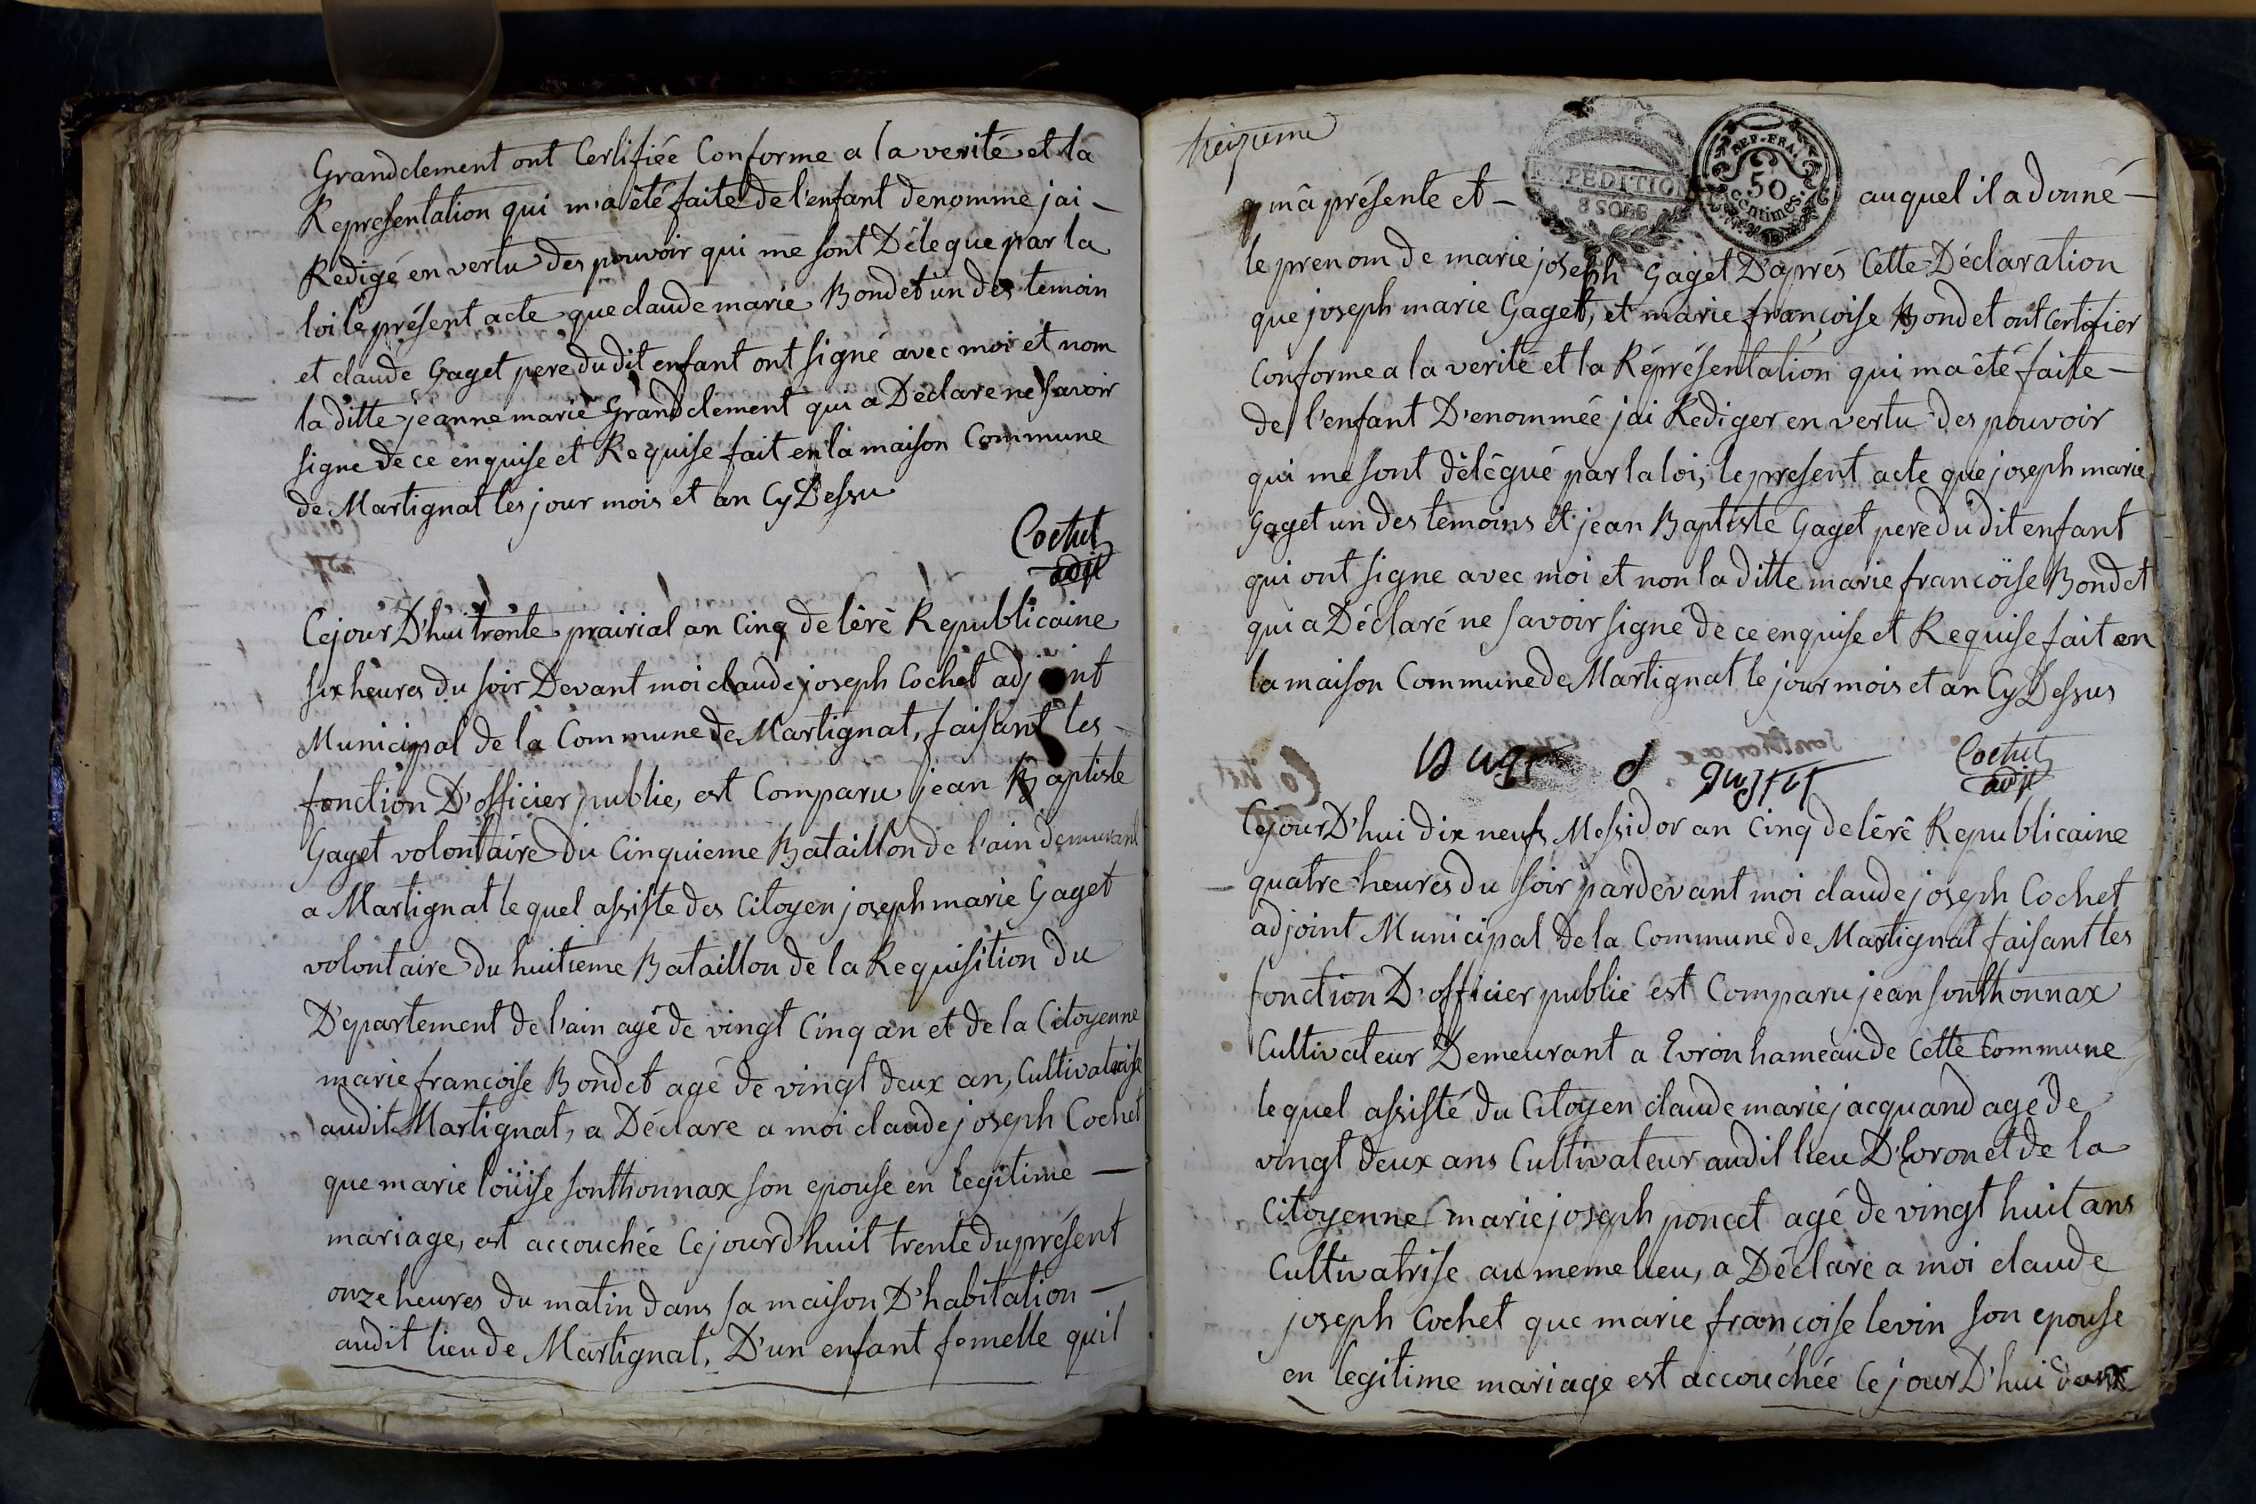 Grandclement ont Certifiée Conforme a la verité et la
Representation qui m'a êté faite de l'enfant denomme jai -
Redigé en vertu des pouvoir qui me sont Délegue par la
loi le présent acte que claude marie Bondet un des temoin
et claude Gaget pere du dit enfant ont signé avec moi et nom
la ditte jeanne marie Grandclement qui a Déclare ne savoir
signe de ce enquise et Requise fait en la maison Commune
de Martignat les jour mois et an Cy Dessu
Cochet
adjt
Cejour D'hui trente prairial an Cinq de lérè Republicaine
six heures du soir Devant moi claude joseph Cochet adjoint
Municipal de la Commune de Martignat, faisant les -
fonction D'officier public, est Comparu jean Baptiste
Gaget volontaire du Cinquieme Bataillon de l'ain demurant
a Martignat le quel assiste des Citoyen joseph marie Gaget
volontaire du huitieme Bataillon de la Requisition du
Département de l'ain agé de vingt Cinq an et de la Citoyenne
marie francoise Bondet agé de vingt deux an, Cultivatrise
audit Martignat, a Déclare a moi claude joseph Cochet
que marie loüise sonthonnax son epouse en legitime —
mariage, est accouchée Cejourdhuit trente du présent
onze heures du matin dans sa maison D'habitation —
audit lieu de Martignat, D'un enfant femelle quil
treizieme
mâ présente et -
EXPEDITION
8 SOLS
REP. FRA.
50
Centimes
auquel il a donné —
le prenom de marie joseph Gaget D'aprés Cette Déclaration
que joseph marie Gaget, et marie françoise Bondet ont Certifier
Conforme a la verité et la Réprésentation qui ma êté faite —
de l'enfant D'enommée jai Rediger en vertu des pouvoir
qui me sont délégué par la loi, le present acte que joseph marie
Gaget un des temoins et jean Baptiste Gaget pere du dit enfant
qui ont signe avec moi et non la ditte marie francoïse Bondet
qui a Déclaré ne savoir signé de ce enquise et Requise fait en
la maison Commune de Martignat le jour mois et an Cy Dessus
Cochet
adjt
Cejour D'hui dix neufs Messidor an Cinq de lérê Republicaine
quatre heures du soir pardevant moi claude joseph Cochet
adjoint Municipal de la Commune de Martignat faisant les
fonction D'officier public est Comparu jean sonthonnax
Cultivateur Demeurant a Evron hameau de Cette Commune
le quel assisté du Citoyen claude marie jacquand agé de
vingt deux ans Cultivateur audit lieu D'Evron et de la
Citoyenne marie joseph poncet agé de vingt huit ans
Cultivatrise au meme lieu, a Déclaré a moi claude
joseph Cochet que marie francoise levin son epouse
en legitime mariage est accouchée Ce jour D'hui dans